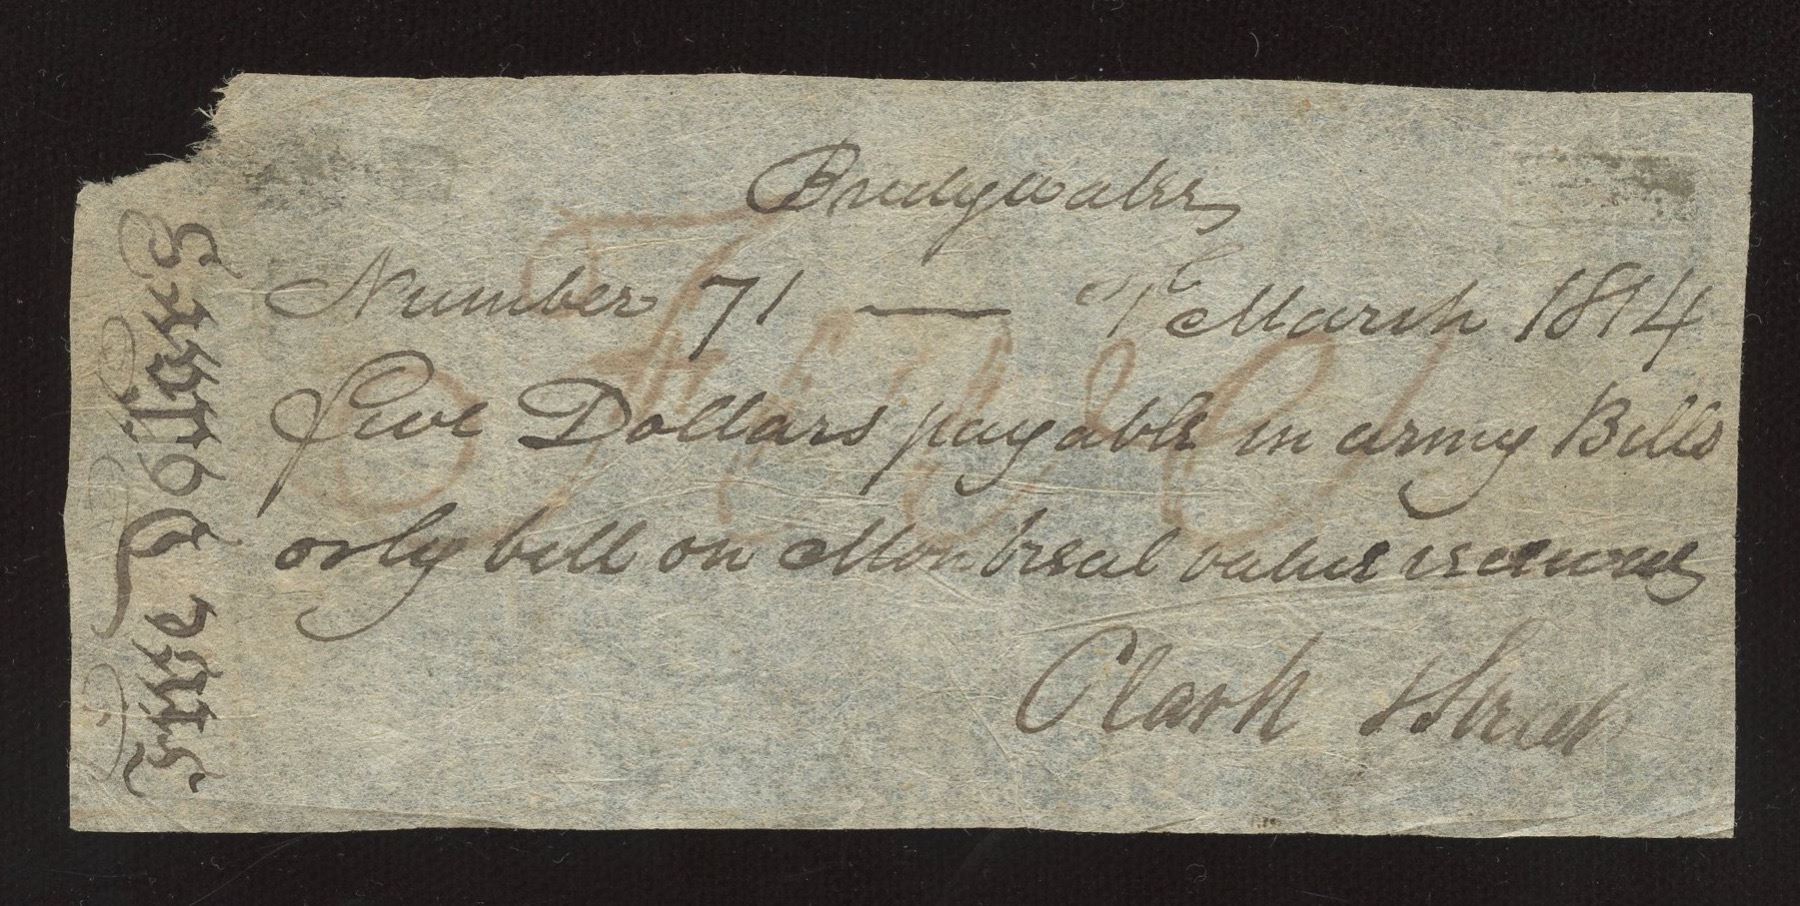 Five Dollars
Bridgwater
Number 71 — March 1814
Five
five Dollars payable in army Bills
only bill on Montreal value received
Clark & Street